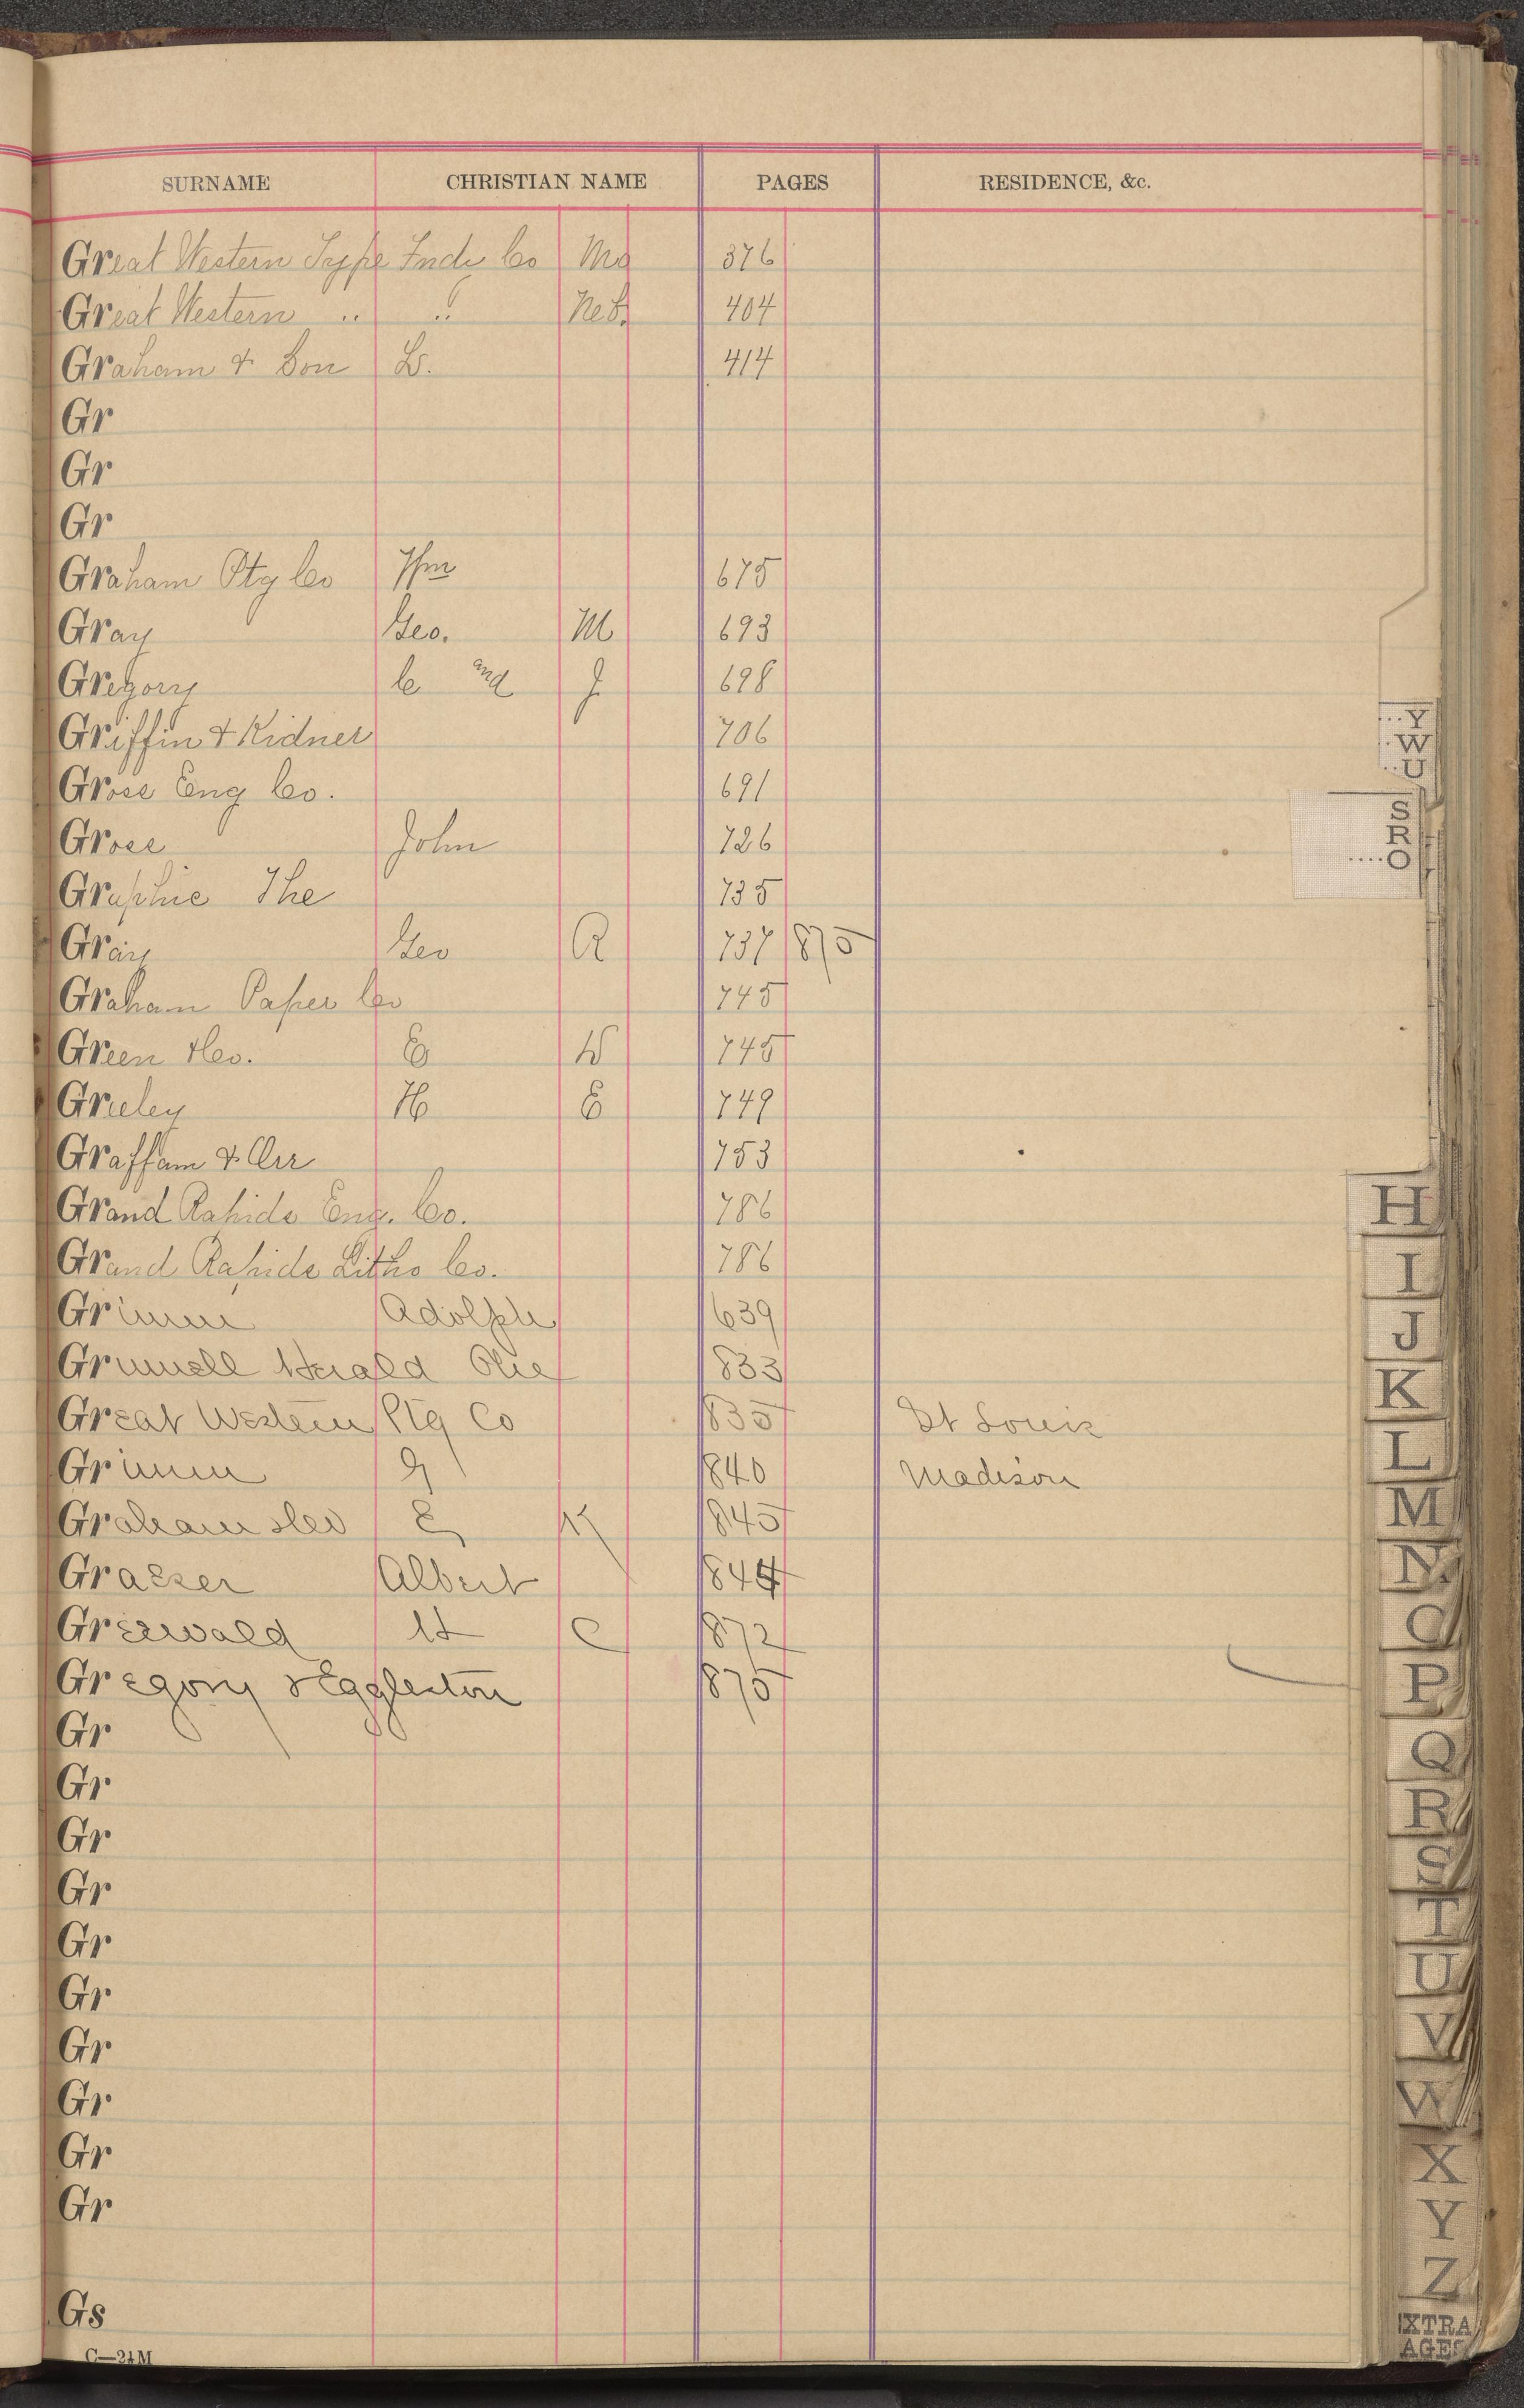 SURNAME CHRISTIAN NAME PAGES RESIDENCE, &c.
Great Western Type Fndy Co Mo 376
Great Western " " Neb. 404
Graham & Son L. 414
Gr
Gr
Gr
Graham Ptg Co Wm 675
Gray Geo. M 693
Gregory C and J 698
Griffin & Kidner 706
Gross Eng Co. 691
Gross John 726
Graphic The 735
Gray Geo R 737 875
Graham Paper Co 745
Green & Co. E W 745
Greeley H E 749
Graffam & Orr 753
Grand Rapids Eng. Co. 786
Grand Rapids Litho Co. 786
Grimm Adolph 639
Grinnell Herald The 833
Great Western Ptg Co 835 St Louis
Grimm G 840 Madison
Graham & Co E K 845
Graeser Albert 844
Greewald H C 872
Gregory & Eggleston 875
Gr
Gr
Gr
Gr
Gr
Gr
Gr
Gr
Gr
Gr
Gs
C—24M
Y
W
U
S
R
O
H
I
J
K
L
M
N
O
P
Q
R
S
T
U
V
W
X
Y
Z
EXTRA
AGES